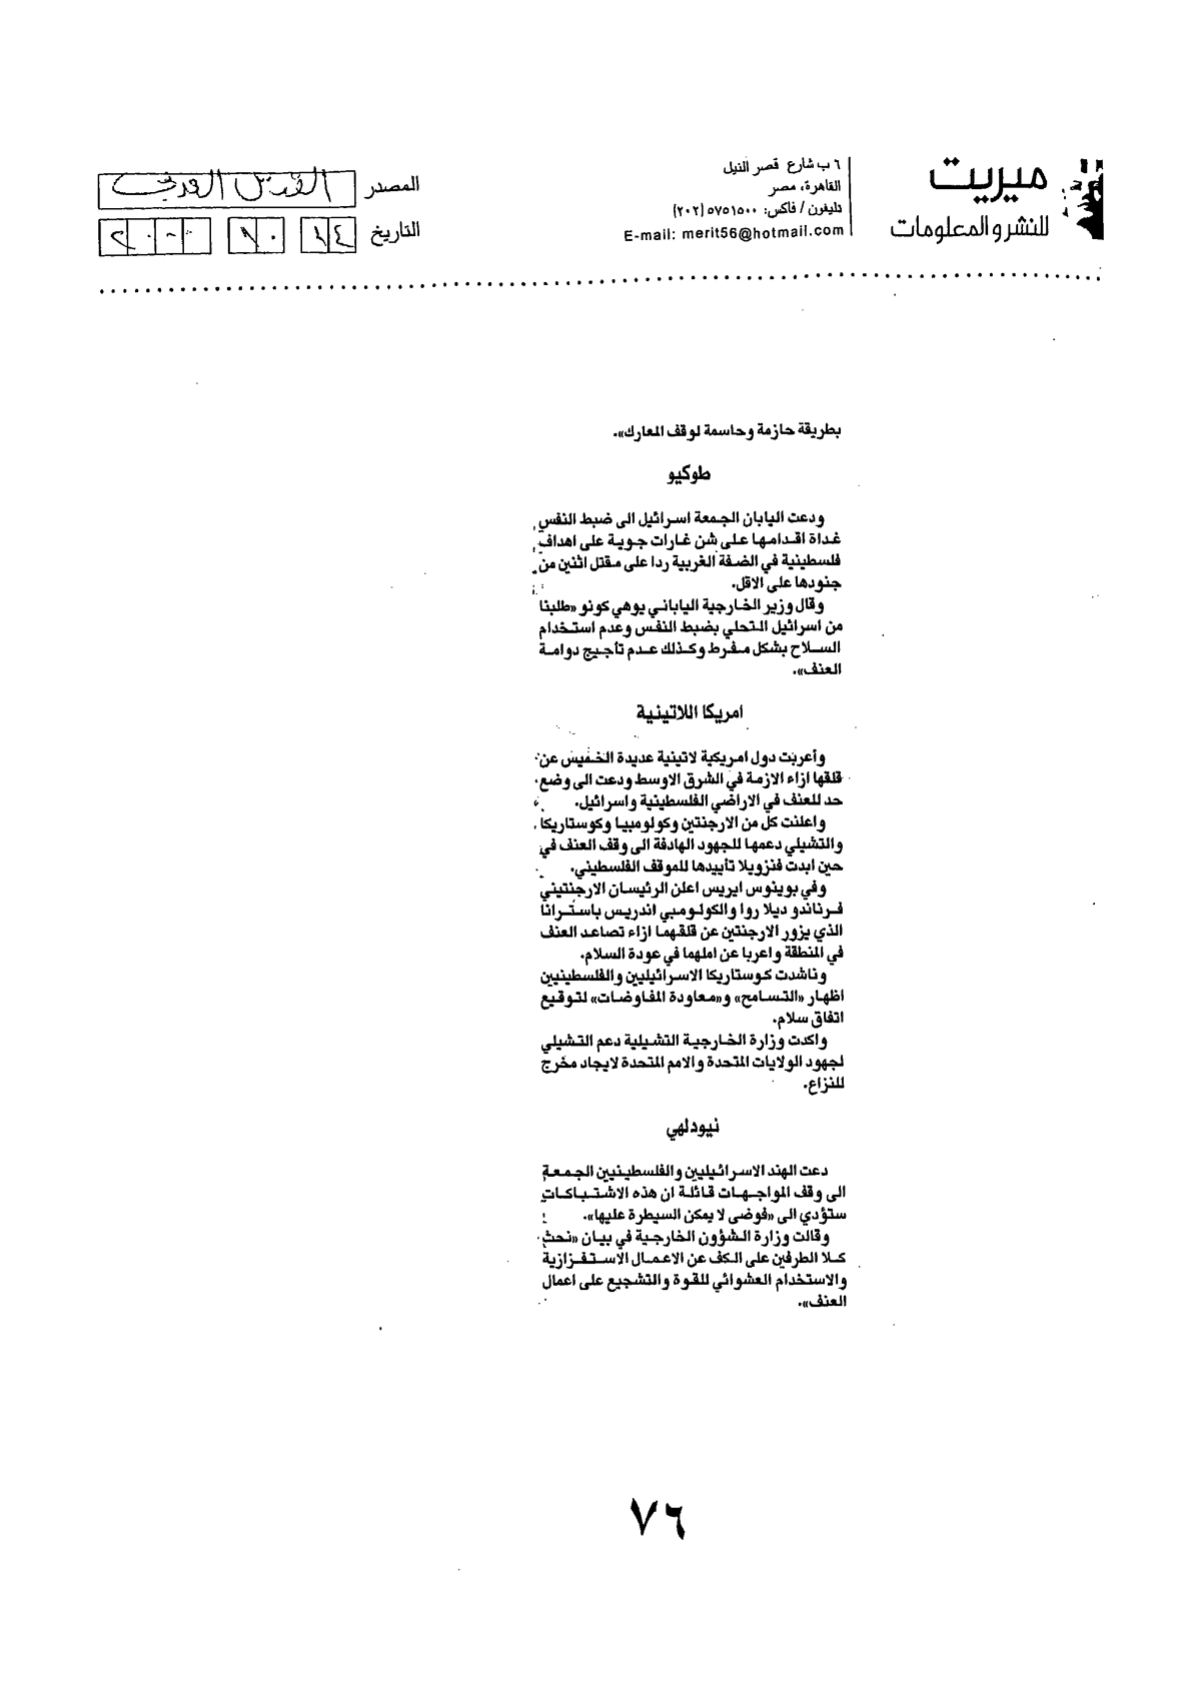 ميريت
للنشر والمعلومات
٦ ب شارع قصر النيل
القاهرة، مصر
تليفون / فاكس: ٥٧٥١٥٠٠ (٢٠٢)
E-mail: merit56@hotmail.com
المصدر القدس العربي
التاريخ ١٤ ١٠ ٢٠٠٠
بطريقة حازمة وحاسمة لوقف المعارك».
طوكيو
ودعت اليابان الجمعة اسرائيل الى ضبط النفس
غداة اقدامها على شن غارات جوية على اهداف
فلسطينية في الضفة الغربية ردا على مقتل اثنين من
جنودها على الاقل.
وقال وزير الخارجية الياباني يوهي كونو «طلبنا
من اسرائيل التحلي بضبط النفس وعدم استخدام
السلاح بشكل مفرط وكذلك عدم تأجيج دوامة
العنف».
امريكا اللاتينية
وأعربت دول امريكية لاتينية عديدة الخميس عن
قلقها ازاء الازمة في الشرق الاوسط ودعت الى وضع
حد للعنف في الاراضي الفلسطينية واسرائيل.
واعلنت كل من الارجنتين وكولومبيا وكوستاريكا
والتشيلي دعمها للجهود الهادفة الى وقف العنف في
حين ابدت فنزويلا تأييدها للموقف الفلسطيني.
وفي بوينوس ايريس اعلن الرئيسان الارجنتيني
فرناندو ديلا روا والكولومبي اندريس باسترانا
الذي يزور الارجنتين عن قلقهما ازاء تصاعد العنف
في المنطقة واعربا عن املهما في عودة السلام.
وناشدت كوستاريكا الاسرائيليين والفلسطينيين
اظهار «التسامح» و«معاودة المفاوضات» لتوقيع
اتفاق سلام.
واكدت وزارة الخارجية التشيلية دعم التشيلي
لجهود الولايات المتحدة والامم المتحدة لايجاد مخرج
للنزاع.
نيودلهي
دعت الهند الاسرائيليين والفلسطينيين الجمعة
الى وقف المواجهات قائلة ان هذه الاشتباكات
ستؤدي الى «فوضى لا يمكن السيطرة عليها».
وقالت وزارة الشؤون الخارجية في بيان «نحث
كلا الطرفين على الكف عن الاعمال الاستفزازية
والاستخدام العشوائي للقوة والتشجيع على اعمال
العنف».
٧٦